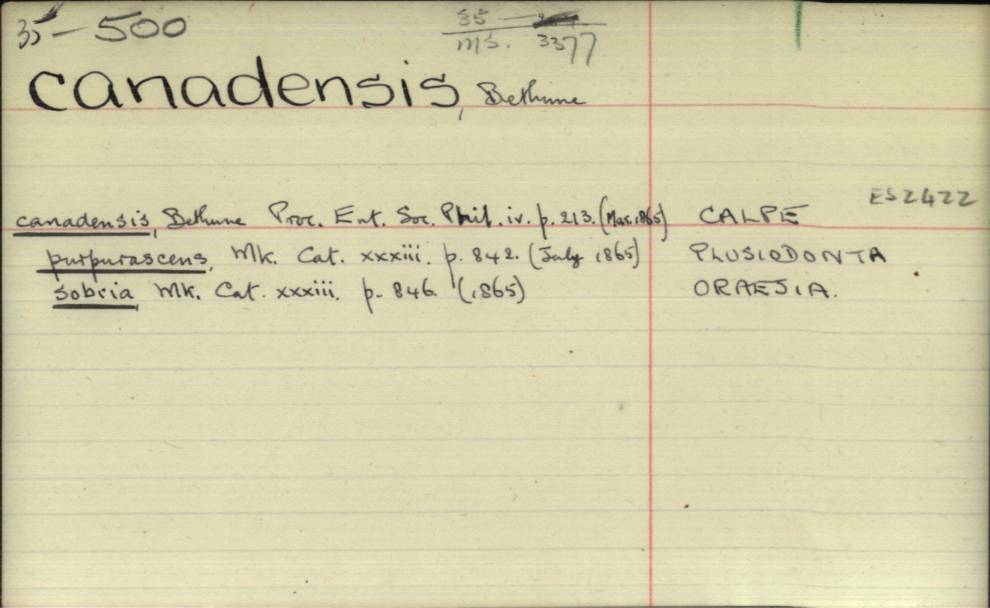 35 - 500
35 -
ms. 3377
canadensis, Bethune
ES2422
canadensis, Bethune Proc. Ent. Soc. Phil. iv. p. 213. (Mar. 1865) CALPE
purpurascens, Wlk. Cat. xxxiii. p. 842. (July 1865) PLUSIODONTA
sobria Wlk. Cat. xxxiii. p. 846. (1865) ORAESIA.